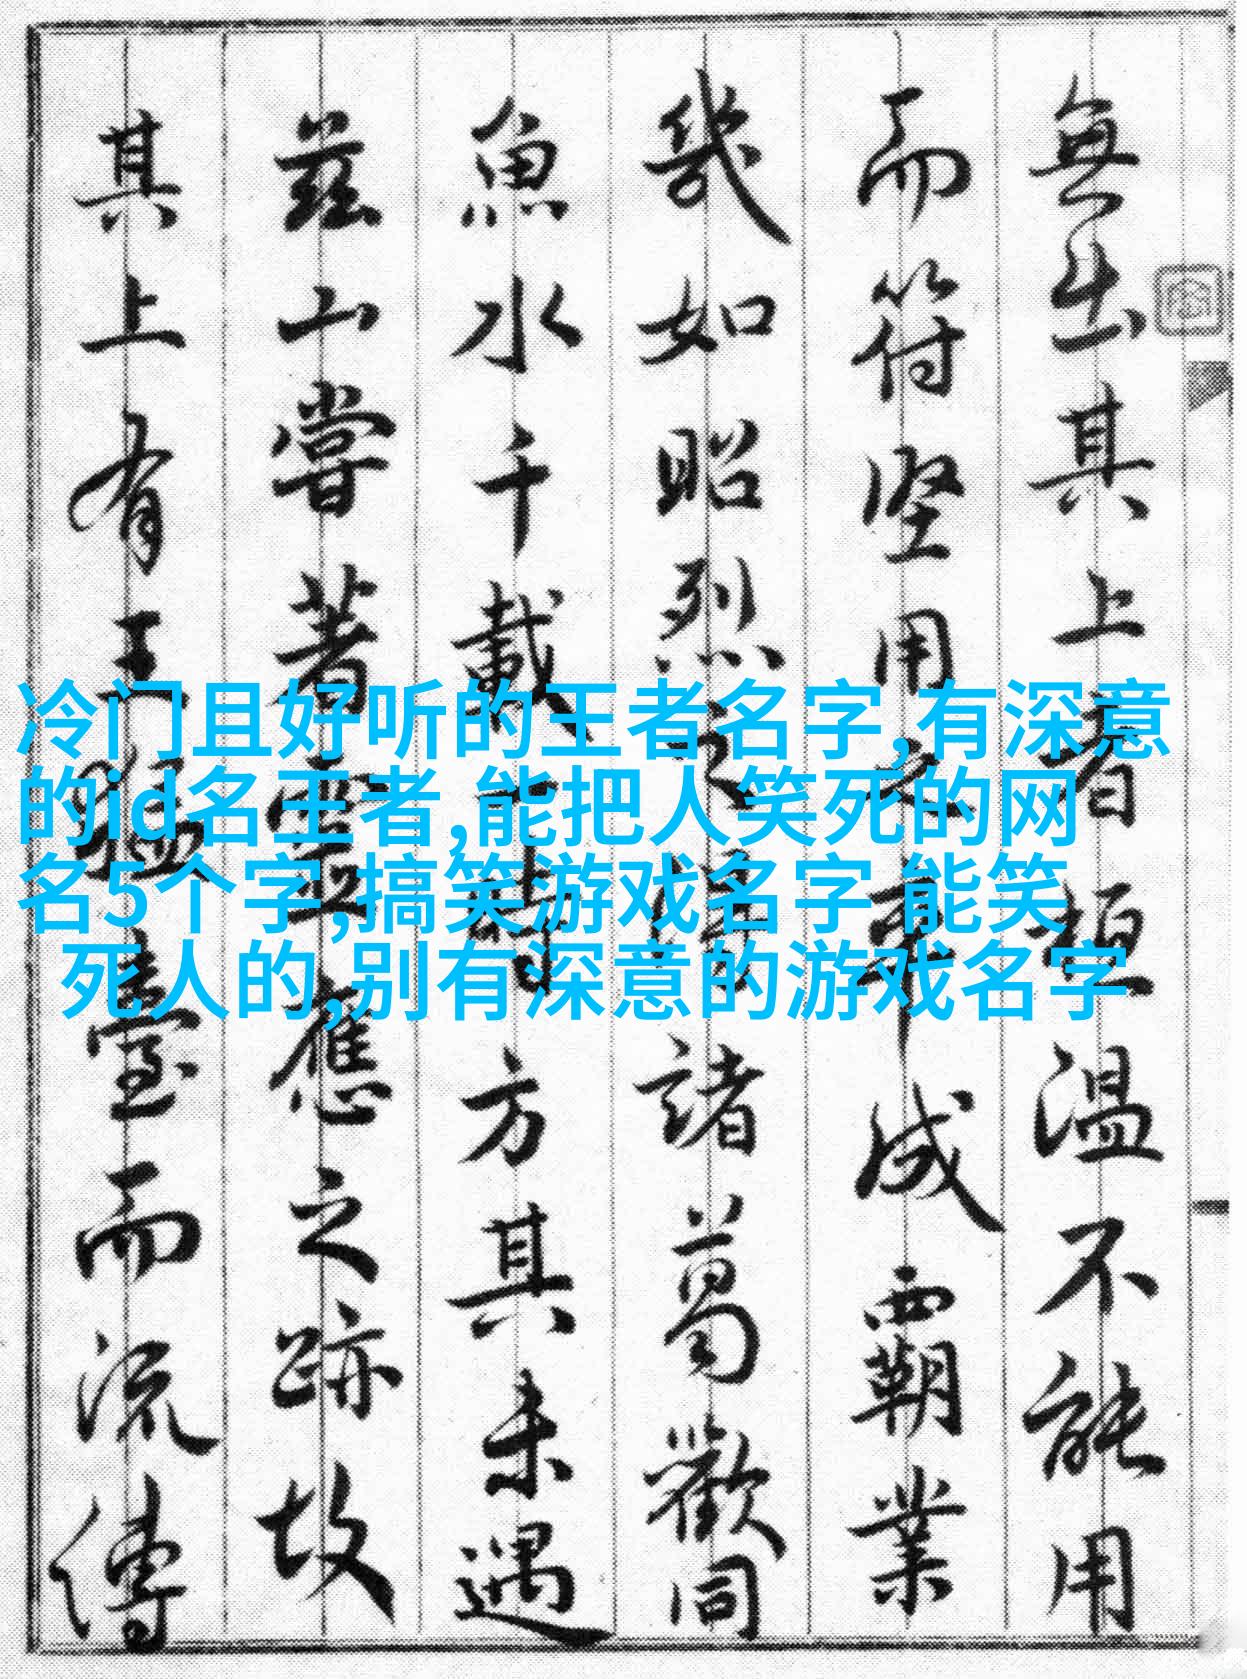 無出其上者桓溫不能用
而符堅用之卒成霸業
幾如昭烈之得諸葛歡同
魚水千載一時方其未遇
茲山嘗著靈應之跡故
其上有王猛臺而流傳
冷门且好听的王者名字,有深意
的id名王者,能把人笑死的网
名5个字,搞笑游戏名字 能笑
死人的,别有深意的游戏名字